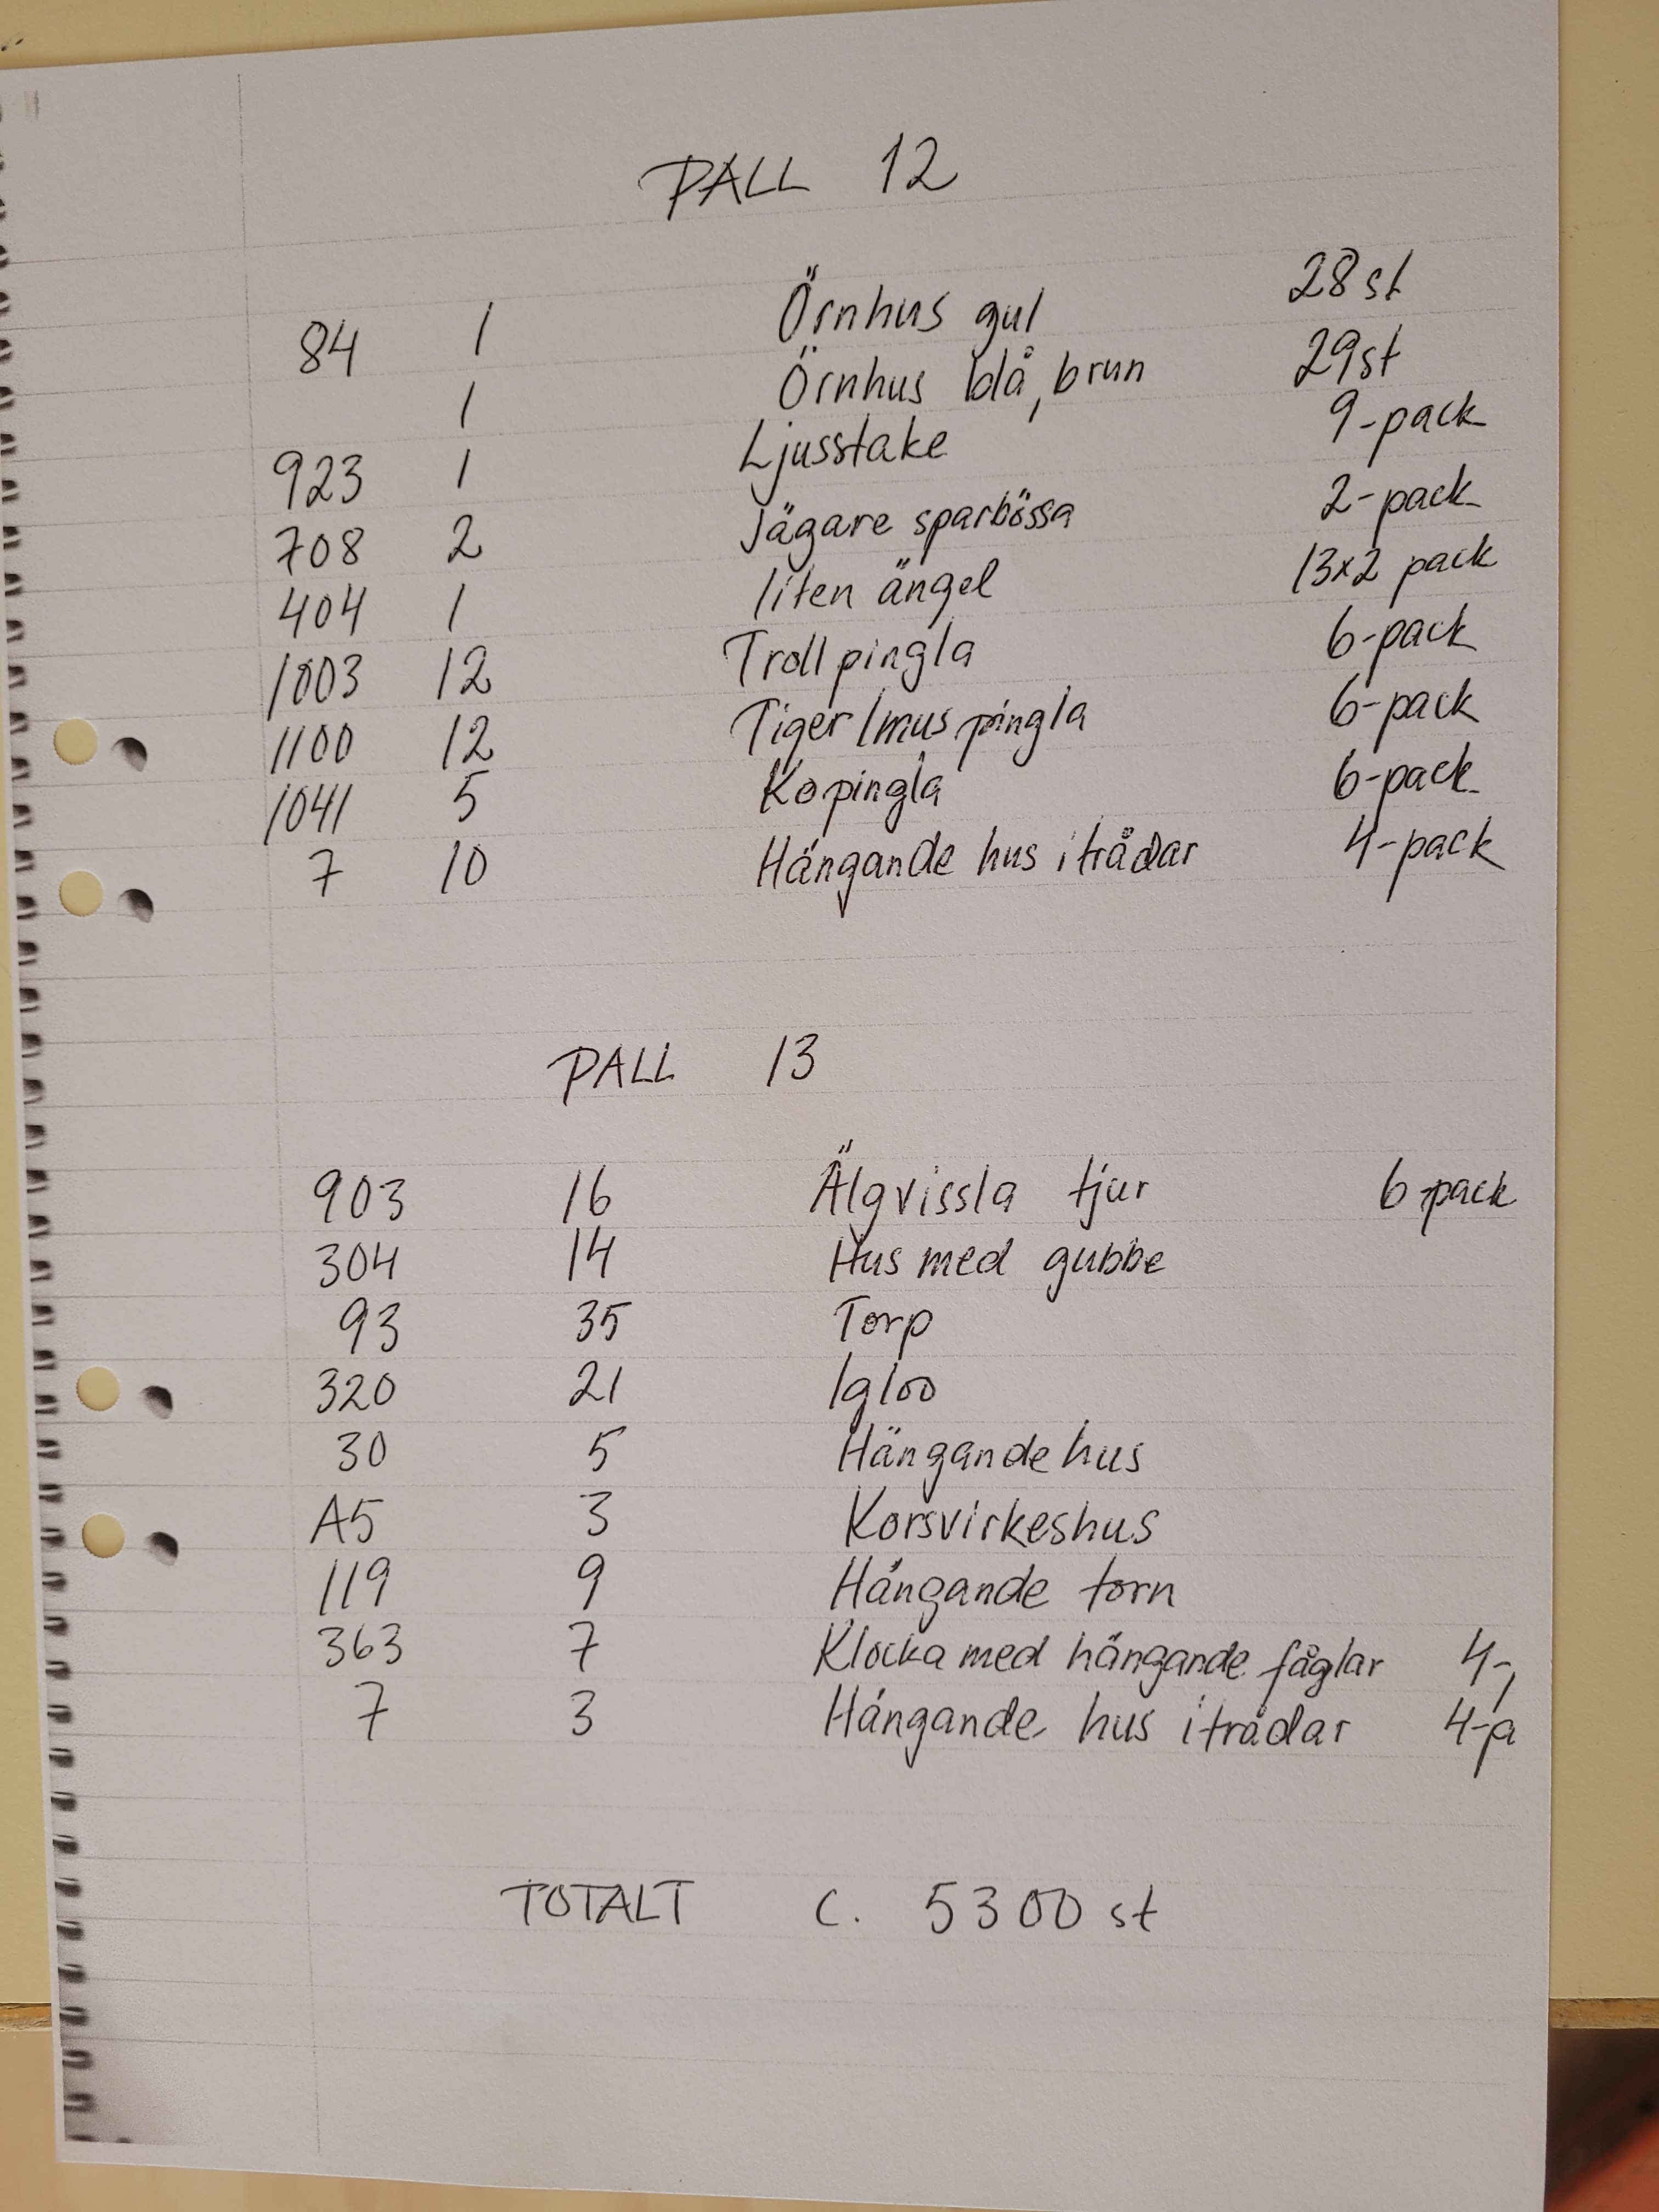 PALL 12
84 1 Örnhus gul 28 st
1 Örnhus blå, brun 29 st
923 1 Ljusstake 9-pack
708 2 Jägare sparbössa 2-pack
404 1 liten ängel 13x2 pack
1003 12 Troll pingla 6-pack
1100 12 Tiger/mus pingla 6-pack
1041 5 Ko pingla 6-pack
7 10 Hängande hus i trådar 4-pack
PALL 13
903 16 Älgvissla tjur 6-pack
304 14 Hus med gubbe
93 35 Torp
320 21 Igloo
30 5 Hängande hus
A5 3 Korsvirkeshus
119 9 Hängande torn
363 7 Klocka med hängande fåglar 4-
7 3 Hängande hus i trådar 4-p
TOTALT C. 5300 st